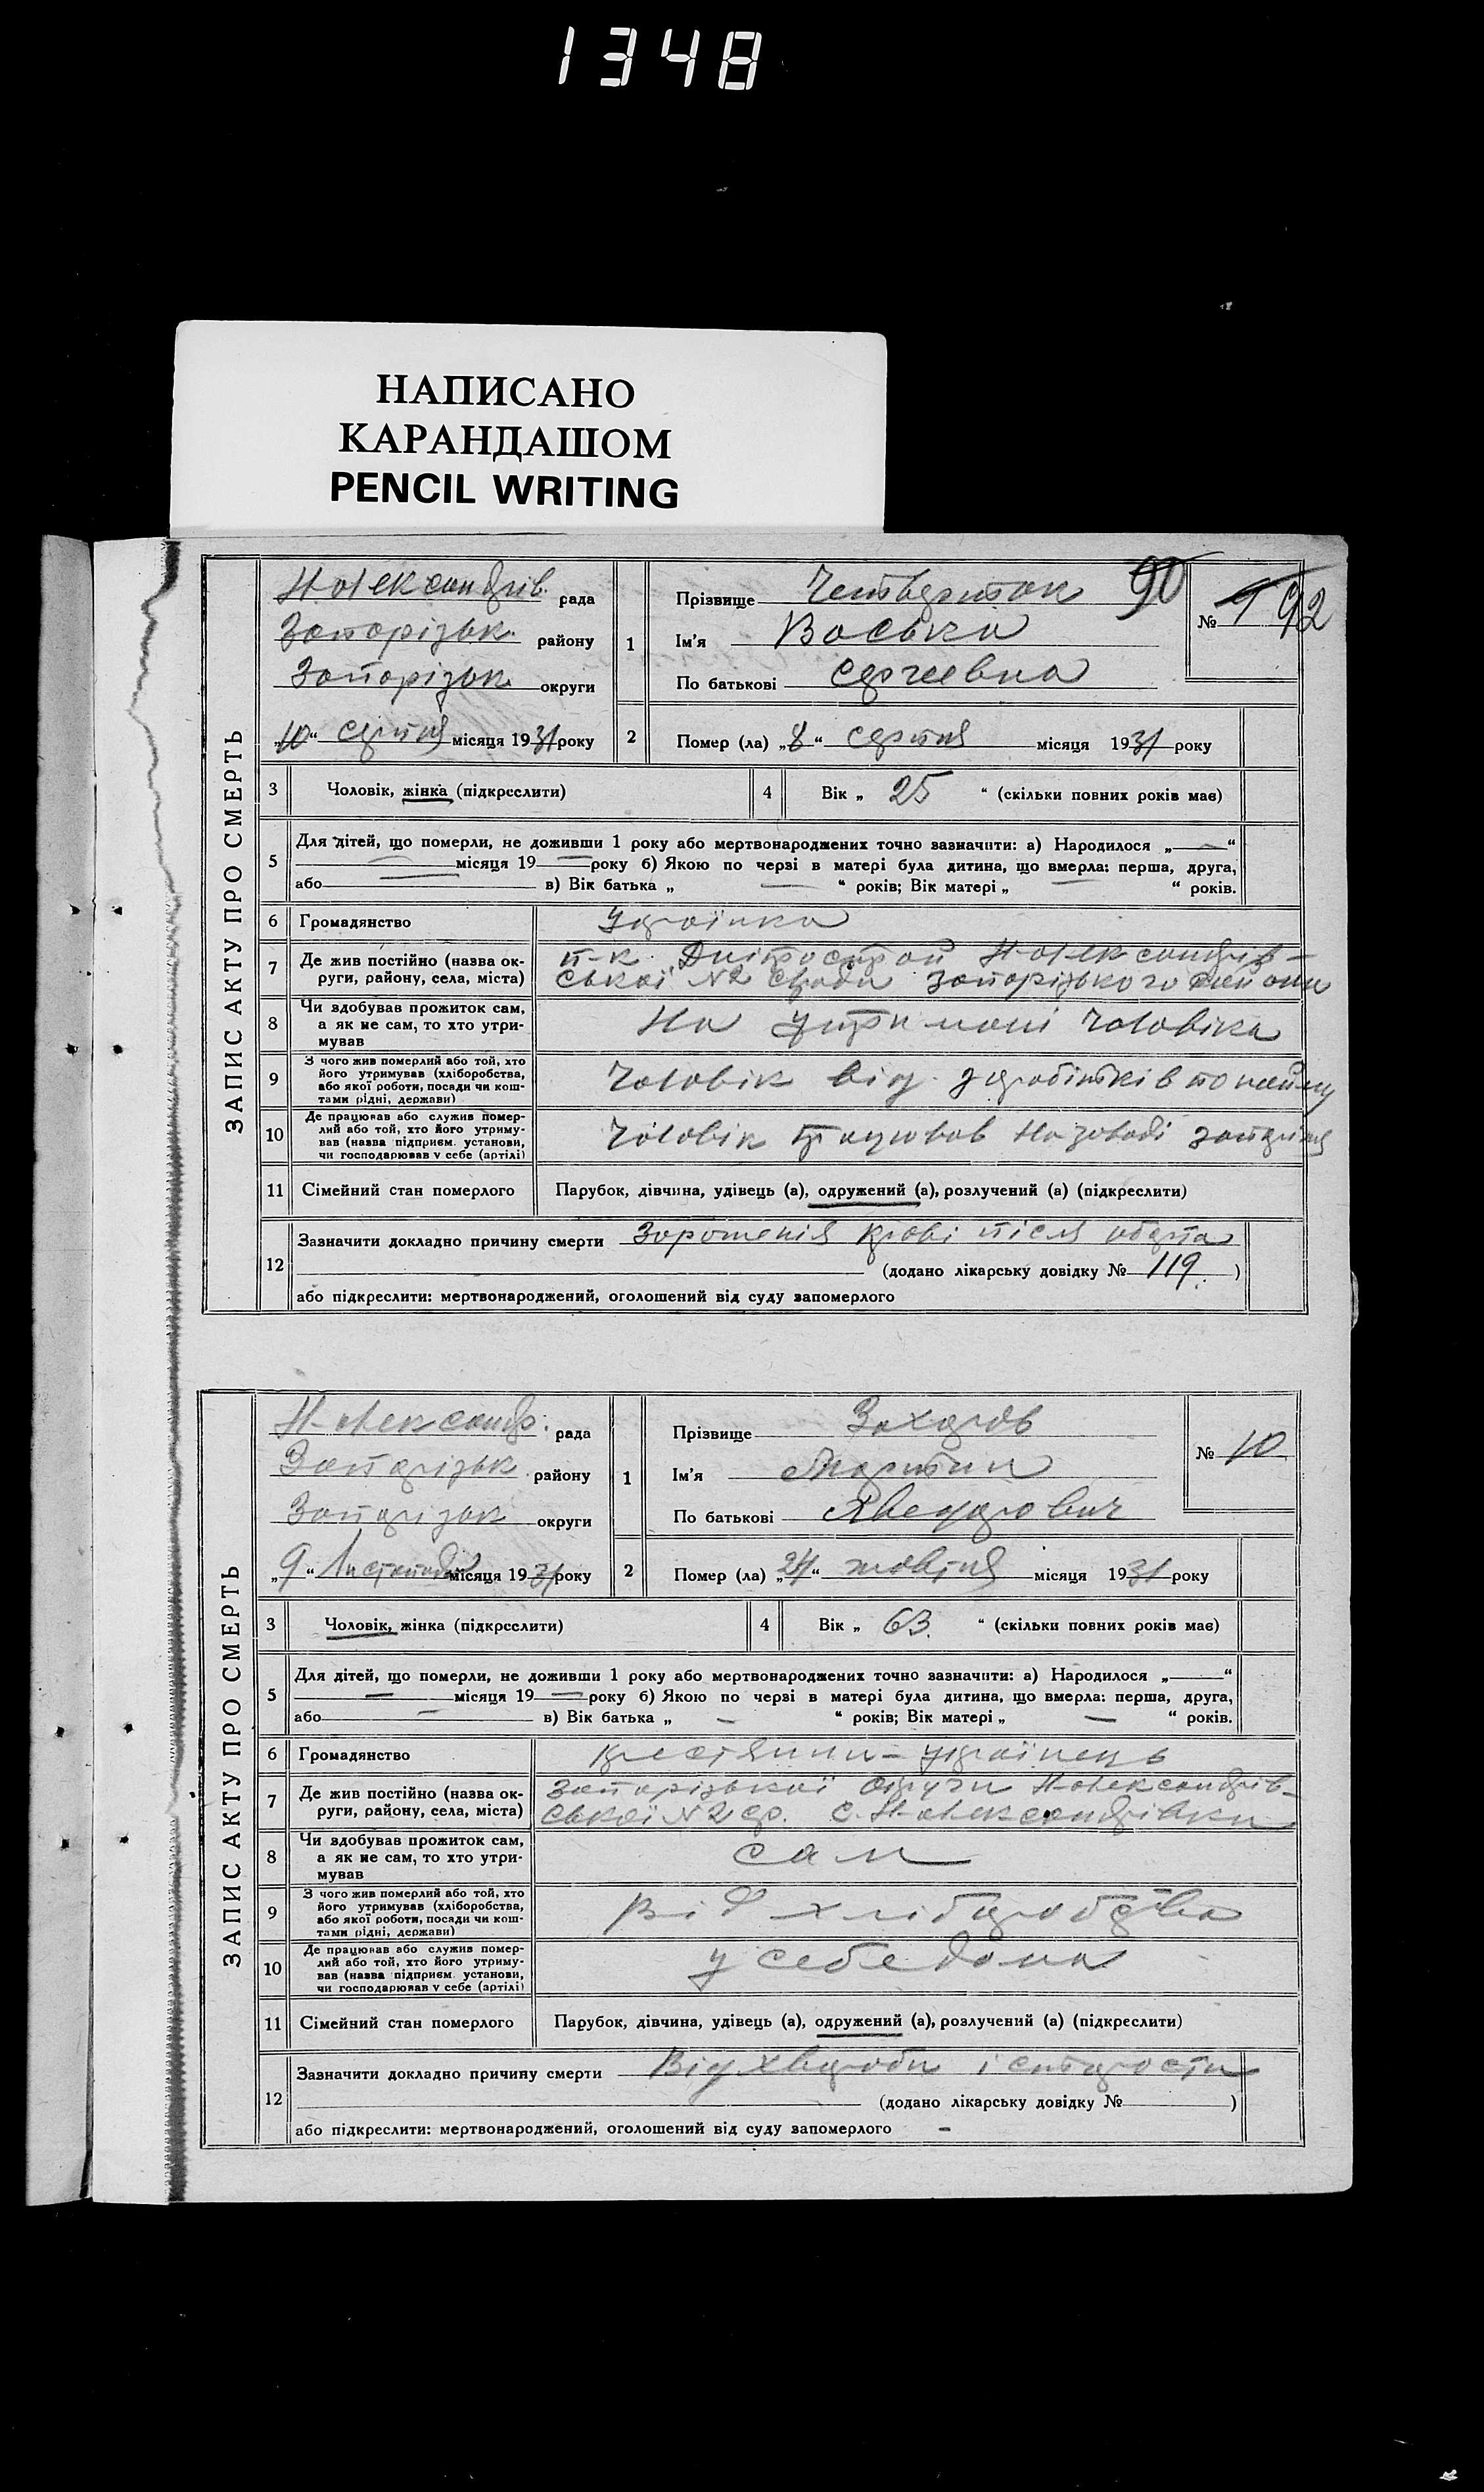 1348
НАПИСАНО
КАРАНДАШОМ
PENCIL WRITING
ЗАПИС АКТУ ПРО СМЕРТЬ
Н-Олександрів. рада
Запорізьк. району
Запорізьк. округи
„10“ серпня місяця 1931 року
1
Прізвище Четверток 90
Ім'я Васька
По батькові Сергеевна
№ 9 92
2 Помер (ла) „8“ серпня місяця 1931 року
3 Чоловік, жінка (підкреслити)
4 Вік „ 25 “ (скільки повних років має)
5 Для дітей, що померли, не доживши 1 року або мертвонароджених точно зазначити: а) Народилося „—“
— місяця 19 — року б) Якою по черзі в матері була дитина, що вмерла: перша, друга,
або — в) Вік батька „ — “ років; Вік матері „ — “ років.
6 Громадянство Українка
7 Де жив постійно (назва округи, району, села, міста) п-к. Дніпрострой Н-Олександрів-
ської №2 с/ради Запорізького району
8 Чи здобував прожиток сам,
а як не сам, то хто утри-
мував На утримані чоловіка
9 З чого жив померлий або той, хто
його утримував (хліборобства,
або якої роботи, посади чи кош-
тами рідні, держави) Чоловік від заробітків по найму
10 Де працював або служив помер-
лий або той, хто його утриму-
вав (назва підприєм. установи,
чи господарював у себе (артілі) Чоловік працював на заводі
11 Сімейний стан померлого Парубок, дівчина, удівець (а), одружений (а), розлучений (а) (підкреслити)
12 Зазначити докладно причину смерти Зороженія крові після аборта
(додано лікарську довідку № 119.)
або підкреслити: мертвонароджений, оголошений від суду запомерлого
ЗАПИС АКТУ ПРО СМЕРТЬ
Н-Олександр. рада
Запорізьк. району
Запорізьк округи
„9“ Листопада місяця 1931 року
1
Прізвище Захаров
Ім'я Мартин
По батькові Хведорович
№ 10
2 Помер (ла) „24“ жовтня місяця 1931 року
3 Чоловік, жінка (підкреслити)
4 Вік „ 63. “ (скільки повних років має)
5 Для дітей, що померли, не доживши 1 року або мертвонароджених точно зазначити: а) Народилося „—“
— місяця 19 — року б) Якою по черзі в матері була дитина, що вмерла: перша, друга,
або — в) Вік батька „ — “ років; Вік матері „ — “ років.
6 Громадянство крестянин - українець
7 Де жив постійно (назва округи, району, села, міста) Запорізької округи Н-Олександрів-
ської №2 ср. с. Н-Олександрівки
8 Чи здобував прожиток сам,
а як не сам, то хто утри-
мував сам
9 З чого жив померлий або той, хто
його утримував (хліборобства,
або якої роботи, посади чи кош-
тами рідні, держави) Від хліборобства
10 Де працював або служив помер-
лий або той, хто його утриму-
вав (назва підприєм. установи,
чи господарював у себе (артілі) у себе дома
11 Сімейний стан померлого Парубок, дівчина, удівець (а), одружений (а), розлучений (а) (підкреслити)
12 Зазначити докладно причину смерти Від хвороби і старости
(додано лікарську довідку № )
або підкреслити: мертвонароджений, оголошений від суду запомерлого –